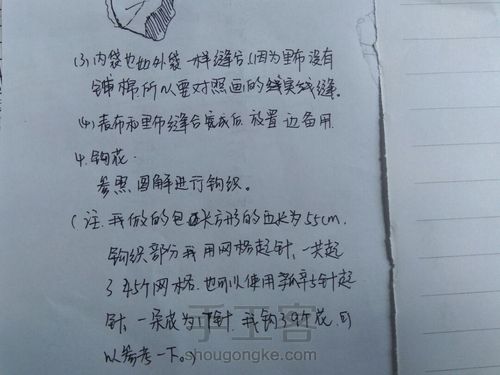 (3)内袋也如外袋一样缝合,因为里布没有
铺棉,所以要对照画的缝实线缝。
(4)表布和里布缝合完成后 放置边备用.
4.钩花.
参照图解进行钩织。
(注.我做的包 长方形的 长为55cm,
钩织部分我用网格起针,一共起
了45个网格.也可以使用 针起
针,一朵成为17针,我钩了9个花,可
以参考一下。)
手工客
shougongke.com